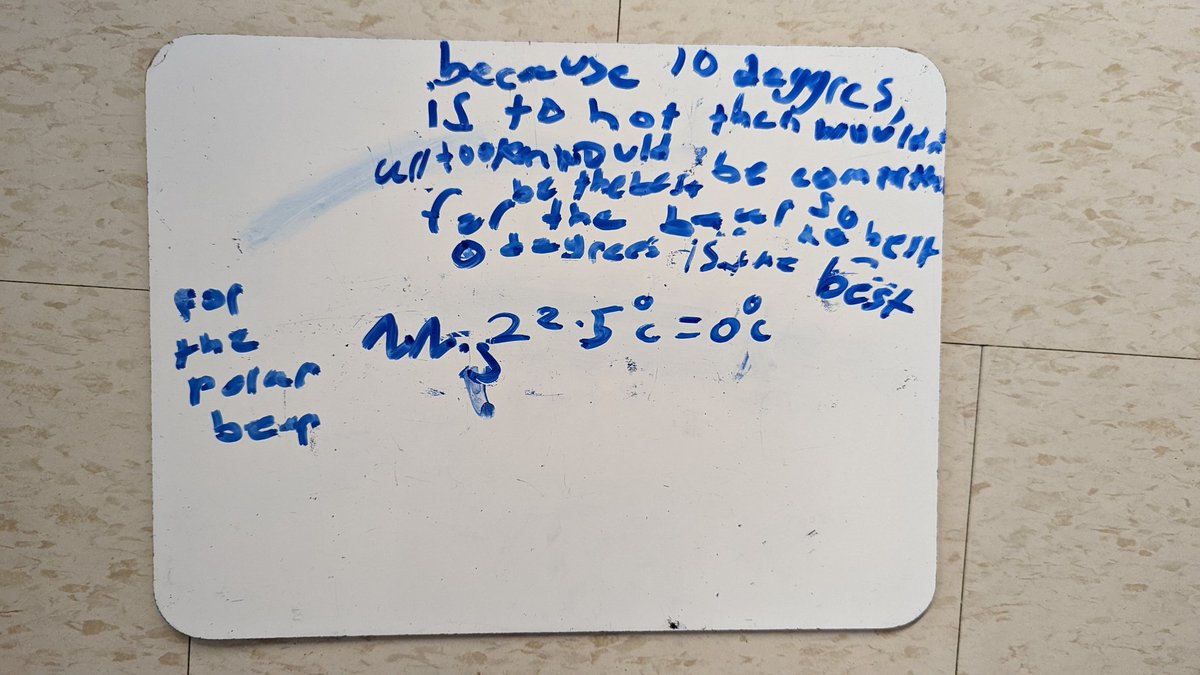 because 10 deggres,
is to hot then would
would be
be the best
for the bear so
0 degrees is the best
best
for
the
polar
bear
2 2.5°c = 0°c